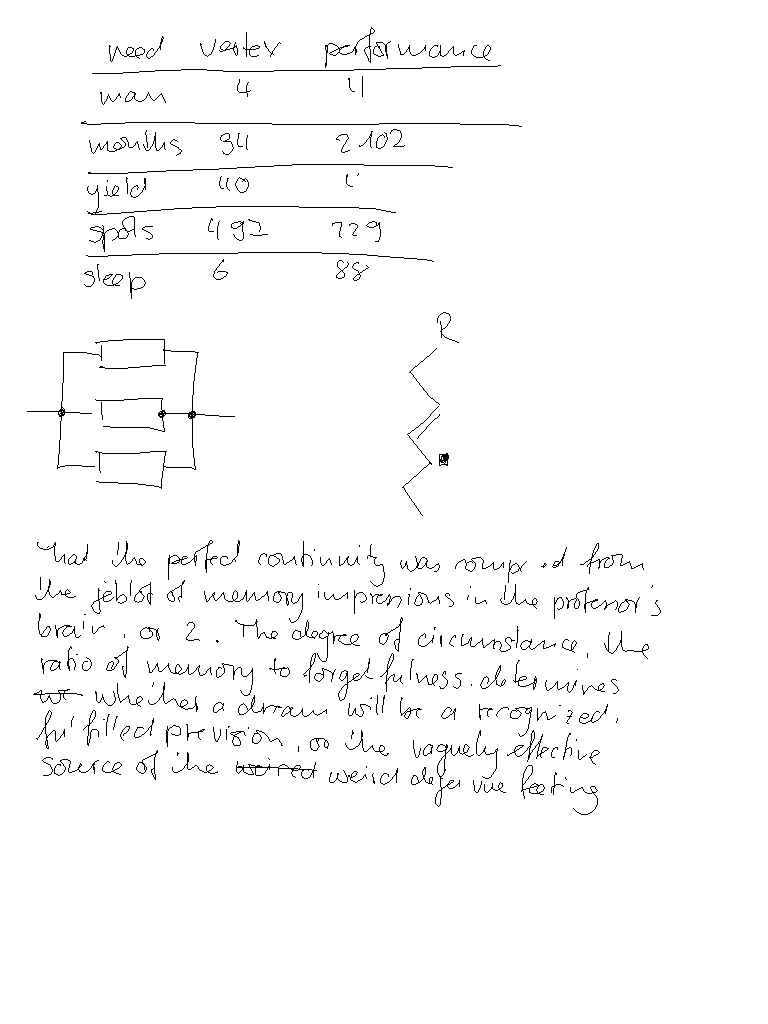 need vertex performance
man 4 4
months 34 2102
yield 40
spots 492 229
sleep 6 88
R
that the perfect continuity was from
the of memory impressions in the professor's
brain, or 2. The degree of circumstance, the
ratio of memory to forgetfulness. determines
whether a dream will be a recognized,
fulfilled prevision, or the vaguely effective
source of the weird deja vue feeling